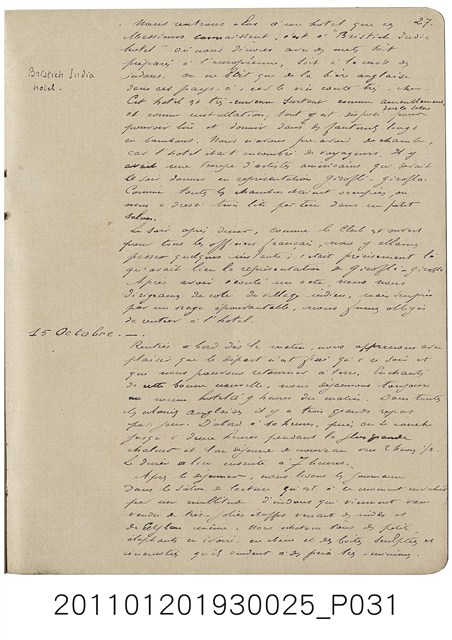 27.
Nous rentrons alors à un hotel que ces
Messieurs connaissent, c'est à "Bristich India
hotel" où nous dinons avec des mets soit
préparés à l'européenne, soit à la mode des
indous. on ne boit que de la bière anglaise
dans ces pays-ci, car le vin coute très cher
Bristich India
hotel.
Cet hotel est très curieux surtout comme ameublement
et comme installation, tout y est disposé pour
pouvoir lire et dormir dans des fauteuils longs
en bambous. Nous n'avons pas de chambre,
car l'hotel était encombré de voyageurs. Il y
avait une troupe d'artistes américains qui devait
le soir donner en représentation Girofli-Girofla.
Comme toutes les chambres étaient occupées, on
nous a dressé trois lits par terre dans un petit
salon.
Le soir après diner, comme le Club est ouvert
pour tous les officiers français, nous y allons
passer quelques instants; c'était précisément là
qu'avait lieu la représentation de Girofli-Girofla
Après avoir écouté un acte, nous nous
dirigeons du coté du village indien, mais surpris
par un orage épouvantable, nous fumes obligés
de rentrer à l'hotel.
15 Octobre. —
Rentrés à bord dès le matin, nous apprenons avec
plaisir que le départ n'est fixé qu'à ce soir et
que nous pouvons retourner à terre. Enchantés
de cette bonne nouvelle, nous déjeunons toujours
au même hotel à 9 heures du matin. Dans toutes
les colonies anglaises il y a trois grands repas
par jour. D'abord à 10 heures, puis on se couche
jusqu'à deux heures pendant la plus grande
chaleur et l'on déjeune de nouveau vers 2 heures ½.
Le diner a lieu ensuite à 7 heures.
Après le déjeuner, nous lisons les journaux
dans le salon de lecture qui est à ce moment envahi
par une multitude d'indous qui viennent vous
vendre de très jolies étoffes venant des indes et
de Ceylan même. Nous achetons tous des petits
éléphants en ivoire, en ébène et des boites sculptées et
incrustées qu'ils vendent à des prix très minimes.
201101201930025_P031